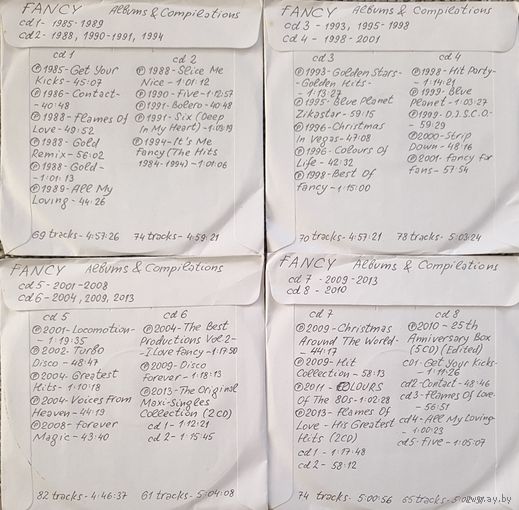 FANCY Albums & Compilations
cd1 - 1985-1989
cd2 - 1988, 1990-1991, 1994
cd 1
℗1985-Get Your
Kicks - 45:07
℗1986-Contact-
- 40:48
℗1988-Flames Of
Love - 49:52
℗1988-Gold
Remix - 56:02
℗1988-Gold -
- 1:01:13
℗1989-All My
Loving - 44:26
69 tracks - 4:57:26
cd 2
℗1988-Slice Me
Nice - 1:01:12
℗1990-Five - 1:12:57
℗1991-Bolero - 40:48
℗1991-Six (Deep
In My Heart) - 1:03:19
℗1994-It's Me
Fancy (The Hits
1984-1994) - 1:01:06
74 tracks - 4:59:21
FANCY Albums & Compilations
cd 3 - 1993, 1995-1998
cd 4 - 1998-2001
cd 3
℗1993-Golden Stars-
- Golden Hits -
- 1:13:27
℗1995-Blue Planet
Zikastar - 59:15
℗1996-Christmas
In Vegas - 47:08
℗1996-Colours Of
Life - 42:32
℗1998-Best Of
Fancy - 1:15:00
70 tracks - 4:57:21
cd 4
℗1998-Hit Party-
- 1:14:21
℗1999-Blue
Planet - 1:03:27
℗1999-D.I.S.C.O.-
- 59:29
℗2000-Strip
Down - 48:16
℗2001-Fancy For
Fans - 57:54
78 tracks - 5:03:24
FANCY Albums & Compilations
cd 5 - 2001-2008
cd 6 - 2004, 2009, 2013
cd 5
℗2001-Locomotion-
- 1:19:35
℗2002-Turbo
Disco - 48:47
℗2004-Greatest
Hits - 1:10:18
℗2004-Voices From
Heaven - 44:19
℗2008-Forever
Magic - 43:40
82 tracks - 4:46:37
cd 6
℗2004-The Best
Productions Vol.2-
- I Love Fancy - 1:17:50
℗2009-Disco
Forever - 1:18:13
℗2013-The Original
Maxi-Singles
Collection (2CD)
cd1 - 1:12:21
cd2 - 1:15:45
61 tracks - 5:04:08
FANCY Albums & Compilations
cd 7 - 2009-2013
cd 8 - 2010
cd 7
℗2009-Christmas
Around The World-
- 44:17
℗2009-Hit
Collection - 58:13
℗2011-COLOURS
Of The 80s - 1:02:28
℗2013-Flames Of
Love - His Greatest
Hits (2CD)
cd1 - 1:17:48
cd2 - 58:12
74 tracks - 5:00:56
cd 8
℗2010-25th
Anniversary Box
(5CD) (Edited)
cd1-Get Your Kicks-
- 1:11:26
cd2-Contact - 48:46
cd3-Flames Of Love-
- 56:51
cd4-All My Loving-
- 1:00:23
cd5-Five - 1:05:07
65 tracks -